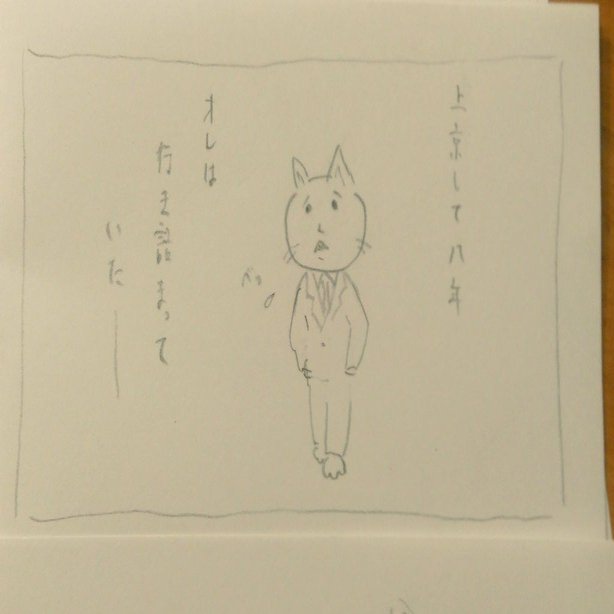 上京して八年
オレは
行き詰まって
いた――